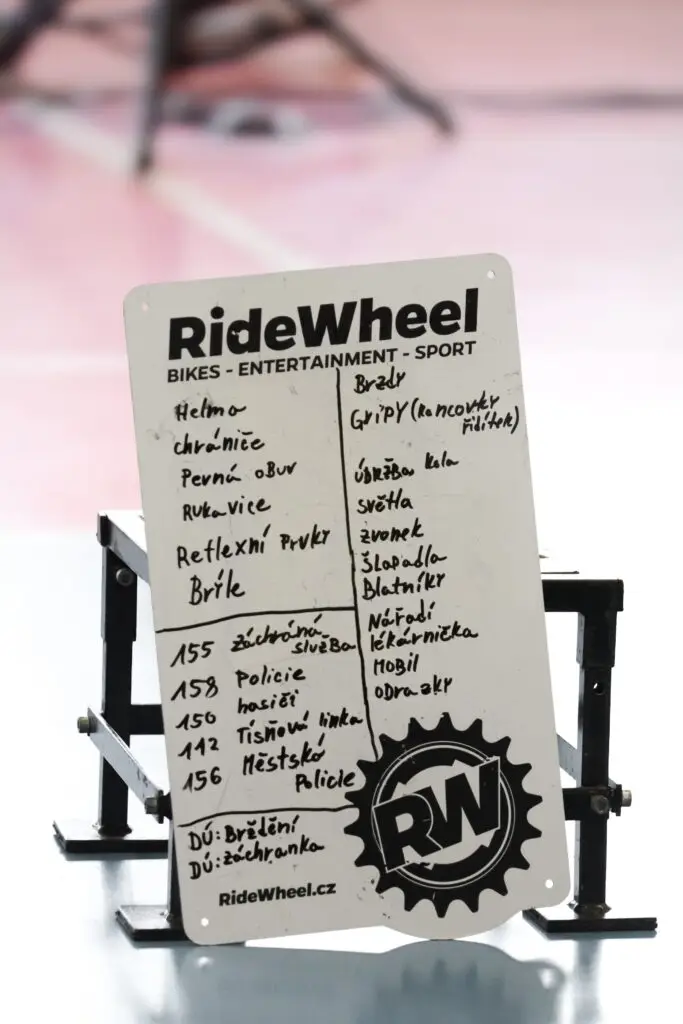 RideWheel
BIKES - ENTERTAINMENT - SPORT
Helma
chrániče
Pevná obuv
Rukavice
Reflexní Prvky
Brýle
155 záchraná
služba
158 Policie
150 hasiči
112 Tísňová linka
156 Městská
Policie
DÚ: Brždění
DÚ: záchranka
Brzdy
GRIPY (koncovky
řidítek)
údržba kola
světla
zvonek
Šlapadla
Blatníky
Nářadí
lékárnička
MOBIL
odrazky
RW
RideWheel.cz